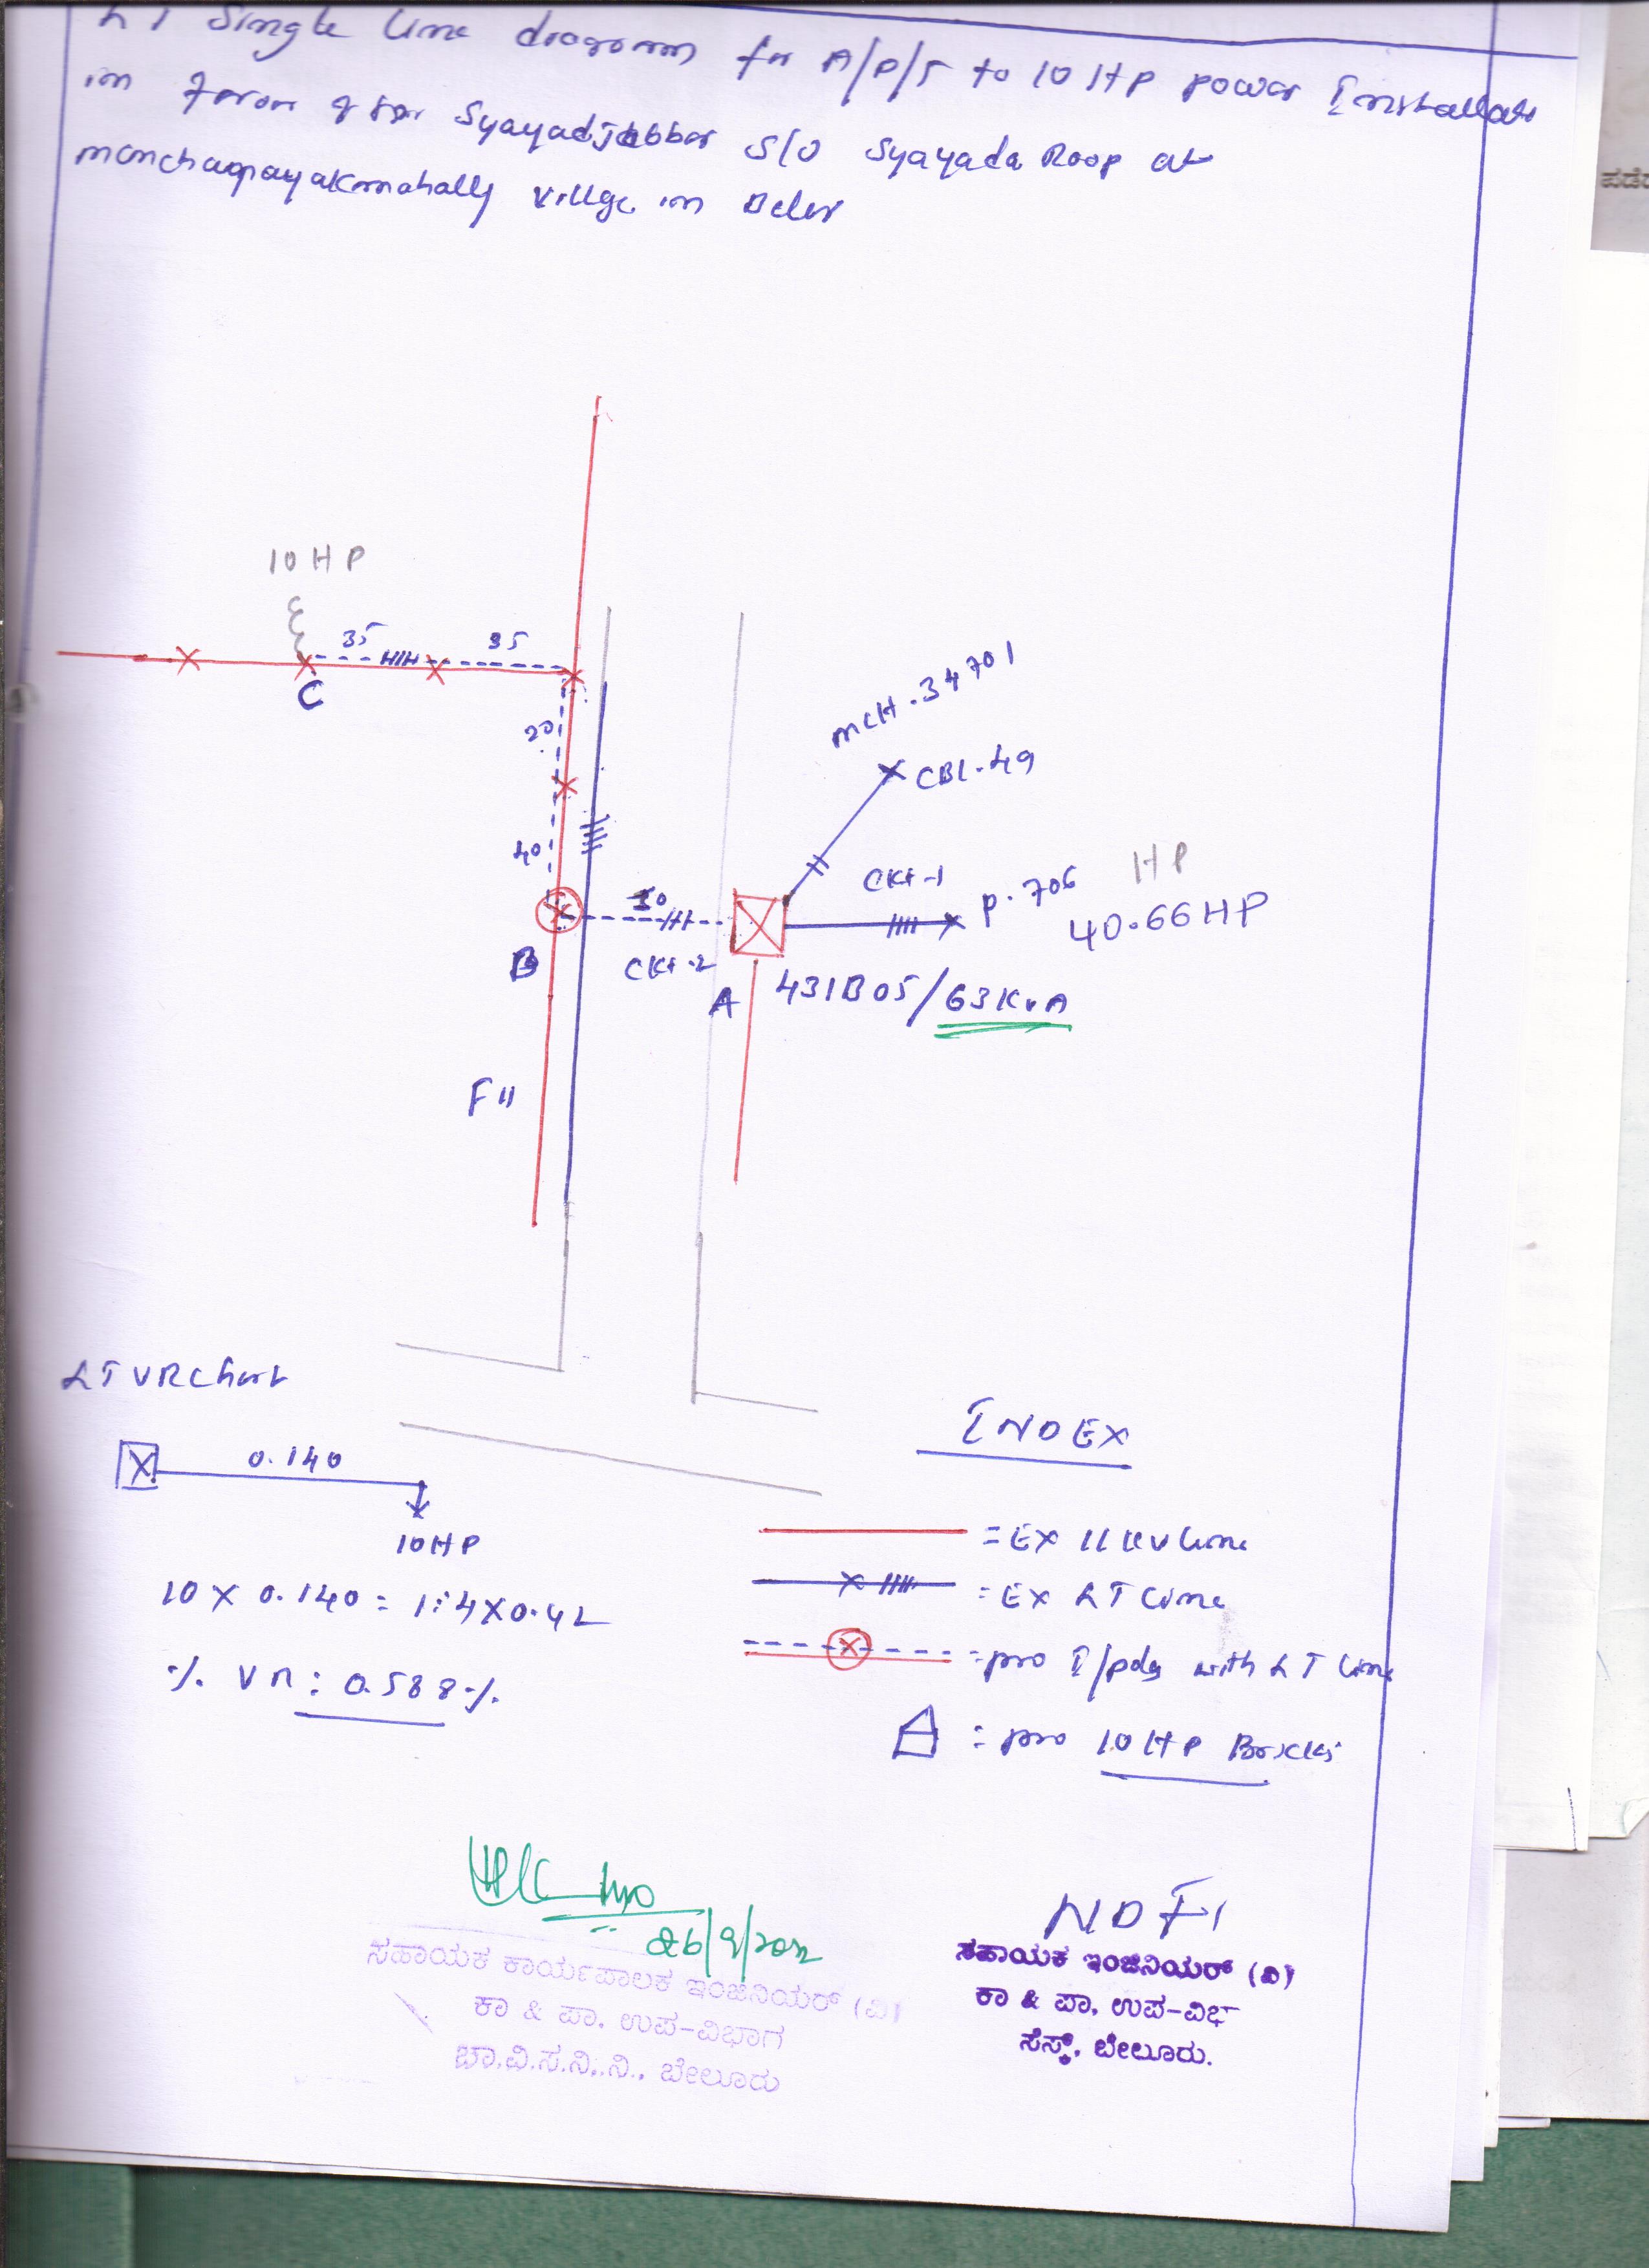 LT Single line diagram for A/P/S to 10 HP power Installati
in favor of Sri Syayad Jabbar S/o Syayada Roop at
village in Belur
10 HP
35
35
C
20
MCH.34701
CBL.49
40
CKt-1
P.706
HP
40.66HP
30
B
CKt.2
A
431B05/63KVA
F11
LT VR Chart
INDEX
0.140
10HP
= Ex 11 KV line
10 X 0.140 = 1.4X0.42
= Ex LT line
= pro I/pole with LT line
% VR: 0.588%
= pro 10 HP Bricks
26/9/2022
ಸಹಾಯಕ ಕಾರ್ಯಪಾಲಕ ಇಂಜಿನಿಯರ್ (ವಿ)
ಕಾ & ಪಾ. ಉಪ-ವಿಭಾಗ
ಚಾ.ವಿ.ಸ.ನಿ.ನಿ., ಬೇಲೂರು
ಸಹಾಯಕ ಇಂಜಿನಿಯರ್ (ವಿ)
ಕಾ & ಪಾ. ಉಪ-ವಿಭ
ಸೆಸ್ಕ್, ಬೇಲೂರು.